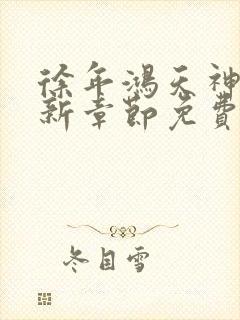 徐年鴻天神
新章節免費
冬目雪